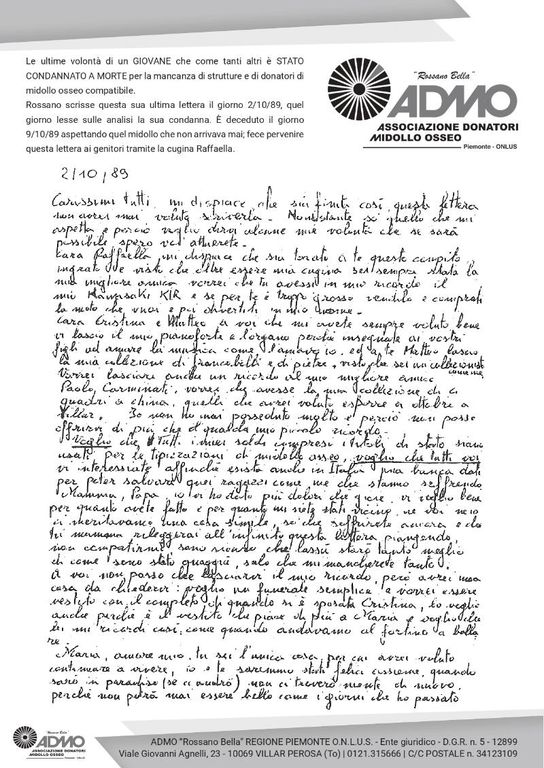 Le ultime volontà di un GIOVANE che come tanti altri è STATO
CONDANNATO A MORTE per la mancanza di strutture e di donatori di
midollo osseo compatibile.
Rossano scrisse questa sua ultima lettera il giorno 2/10/89, quel
giorno lesse sulle analisi la sua condanna. È deceduto il giorno
9/10/89 aspettando quel midollo che non arrivava mai; fece pervenire
questa lettera ai genitori tramite la cugina Raffaella.
"Rossano Bella"
ADMO
ASSOCIAZIONE DONATORI
MIDOLLO OSSEO
Piemonte - ONLUS
2/10/89
Carissimi tutti, mi dispiace che sia finita così, questa lettera
non avrei mai voluto scriverla. Nonostante so quello che mi
aspetta e perciò voglio dirvi alcune mie volontà che se sarà
possibile spero voi atterrete.
Cara Raffaella mi dispiace che sia toccato a te questo compito
ingrato e visto che oltre essere mia cugina sei sempre stata la
mia migliore amica vorrei che tu avessi in mio ricordo il
mio Kawasaki KLR e se per te è troppo grosso vendilo e comprati
la moto che vuoi e poi divertiti in mio onore.
Cara Cristina e Matteo a voi che mi avete sempre voluto bene
vi lascio il mio pianoforte e l'organo perchè insegniate ai vostri
figli ad amare la musica come l'amavo io. ed a te Matteo lascio
la mia collezione di francobolli e di pietre, visto che sei un collezionista
come me.
Vorrei lasciare anche un ricordo al mio migliore amico
Paolo, Carminati, vorrei che avesse la mia collezione di
quadri a china, quelli che avrei voluto esporre a ottobre a
Villar. Io non ho mai posseduto molto e perciò non posso
offrirvi di più che qualche mio piccolo ricordo.
Voglio che tutti i miei soldi compresi i titoli di stato siano
usati per le tipizzazioni di midollo osseo, voglio che tutti voi
vi interessiate affinchè esista anche in Italia una banca dati
per poter salvare quei ragazzi come me che stanno soffrendo
Mamma, Papà, io vi ho dato più dolori che gioie, vi voglio bene
per quanto avete fatto e per quanto mi siete stati vicino, nè voi nè io
ci meritavamo una cosa simile, so che soffrirete ancora e che
tu mamma rileggerai all'infinito questa lettera piangendo,
non compatirmi sono sicuro che lassù starò tanto meglio
di come sono stato quaggiù, solo che mi mancherete tanto.
A voi non posso che lasciarvi il mio ricordo, però avrei una
cosa da chiedervi: voglio un funerale semplice e vorrei essere
vestito con il completo di quando si è sposata Cristina, lo voglio
anche perchè è il vestito che piace di più a Maria e voglio che
lei mi ricordi così, come quando andavamo al fortino a balla
re.
Maria, amore mio, tu sei l'unica cosa per cui avrei voluto
continuare a vivere, io e te saremmo stati felici assieme, quando
sarò in paradiso (se ci andrò) non ci troverò niente di nuovo,
perchè non potrà mai essere bello come i giorni che ho passato
"Rossano Bella"
ADMO
ASSOCIAZIONE DONATORI
MIDOLLO OSSEO
Piemonte - ONLUS
ADMO "Rossano Bella" REGIONE PIEMONTE O.N.L.U.S. - Ente giuridico - D.G.R. n. 5 - 12899
Viale Giovanni Agnelli, 23 - 10069 VILLAR PEROSA (To) | 0121.315666 | C/C POSTALE n. 34123109